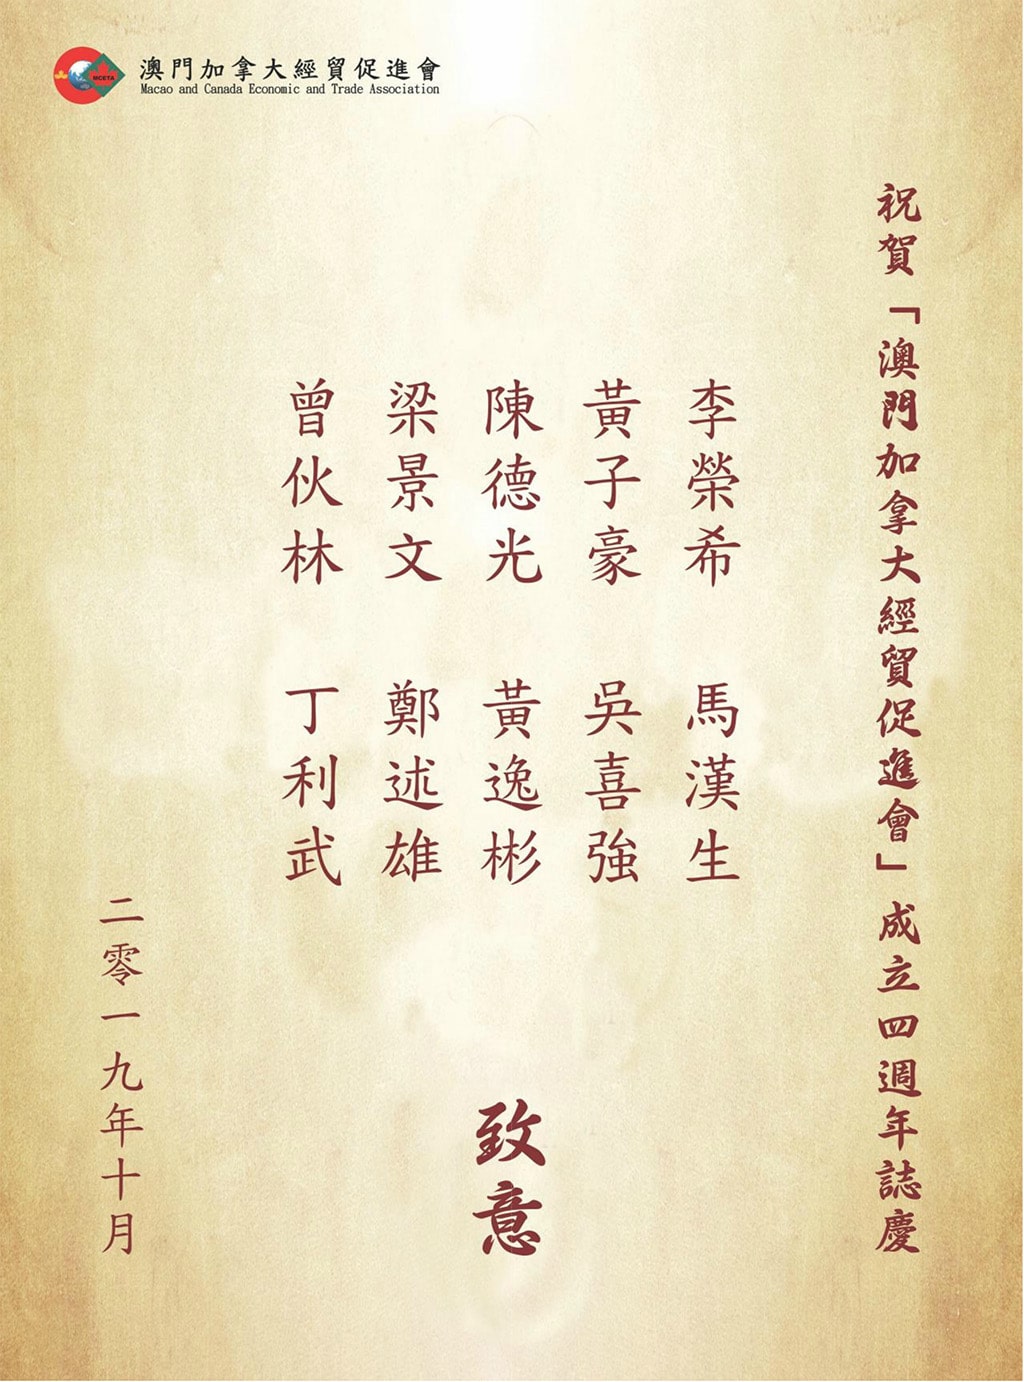 澳門加拿大經貿促進會
Macao and Canada Economic and Trade Association
MCETA
祝賀「澳門加拿大經貿促進會」成立四週年誌慶
李榮希 馬漢生
黃子豪 吳喜強
陳德光 黃逸彬
梁景文 鄭述雄
曾伙林 丁利武
致意
二零一九年十月